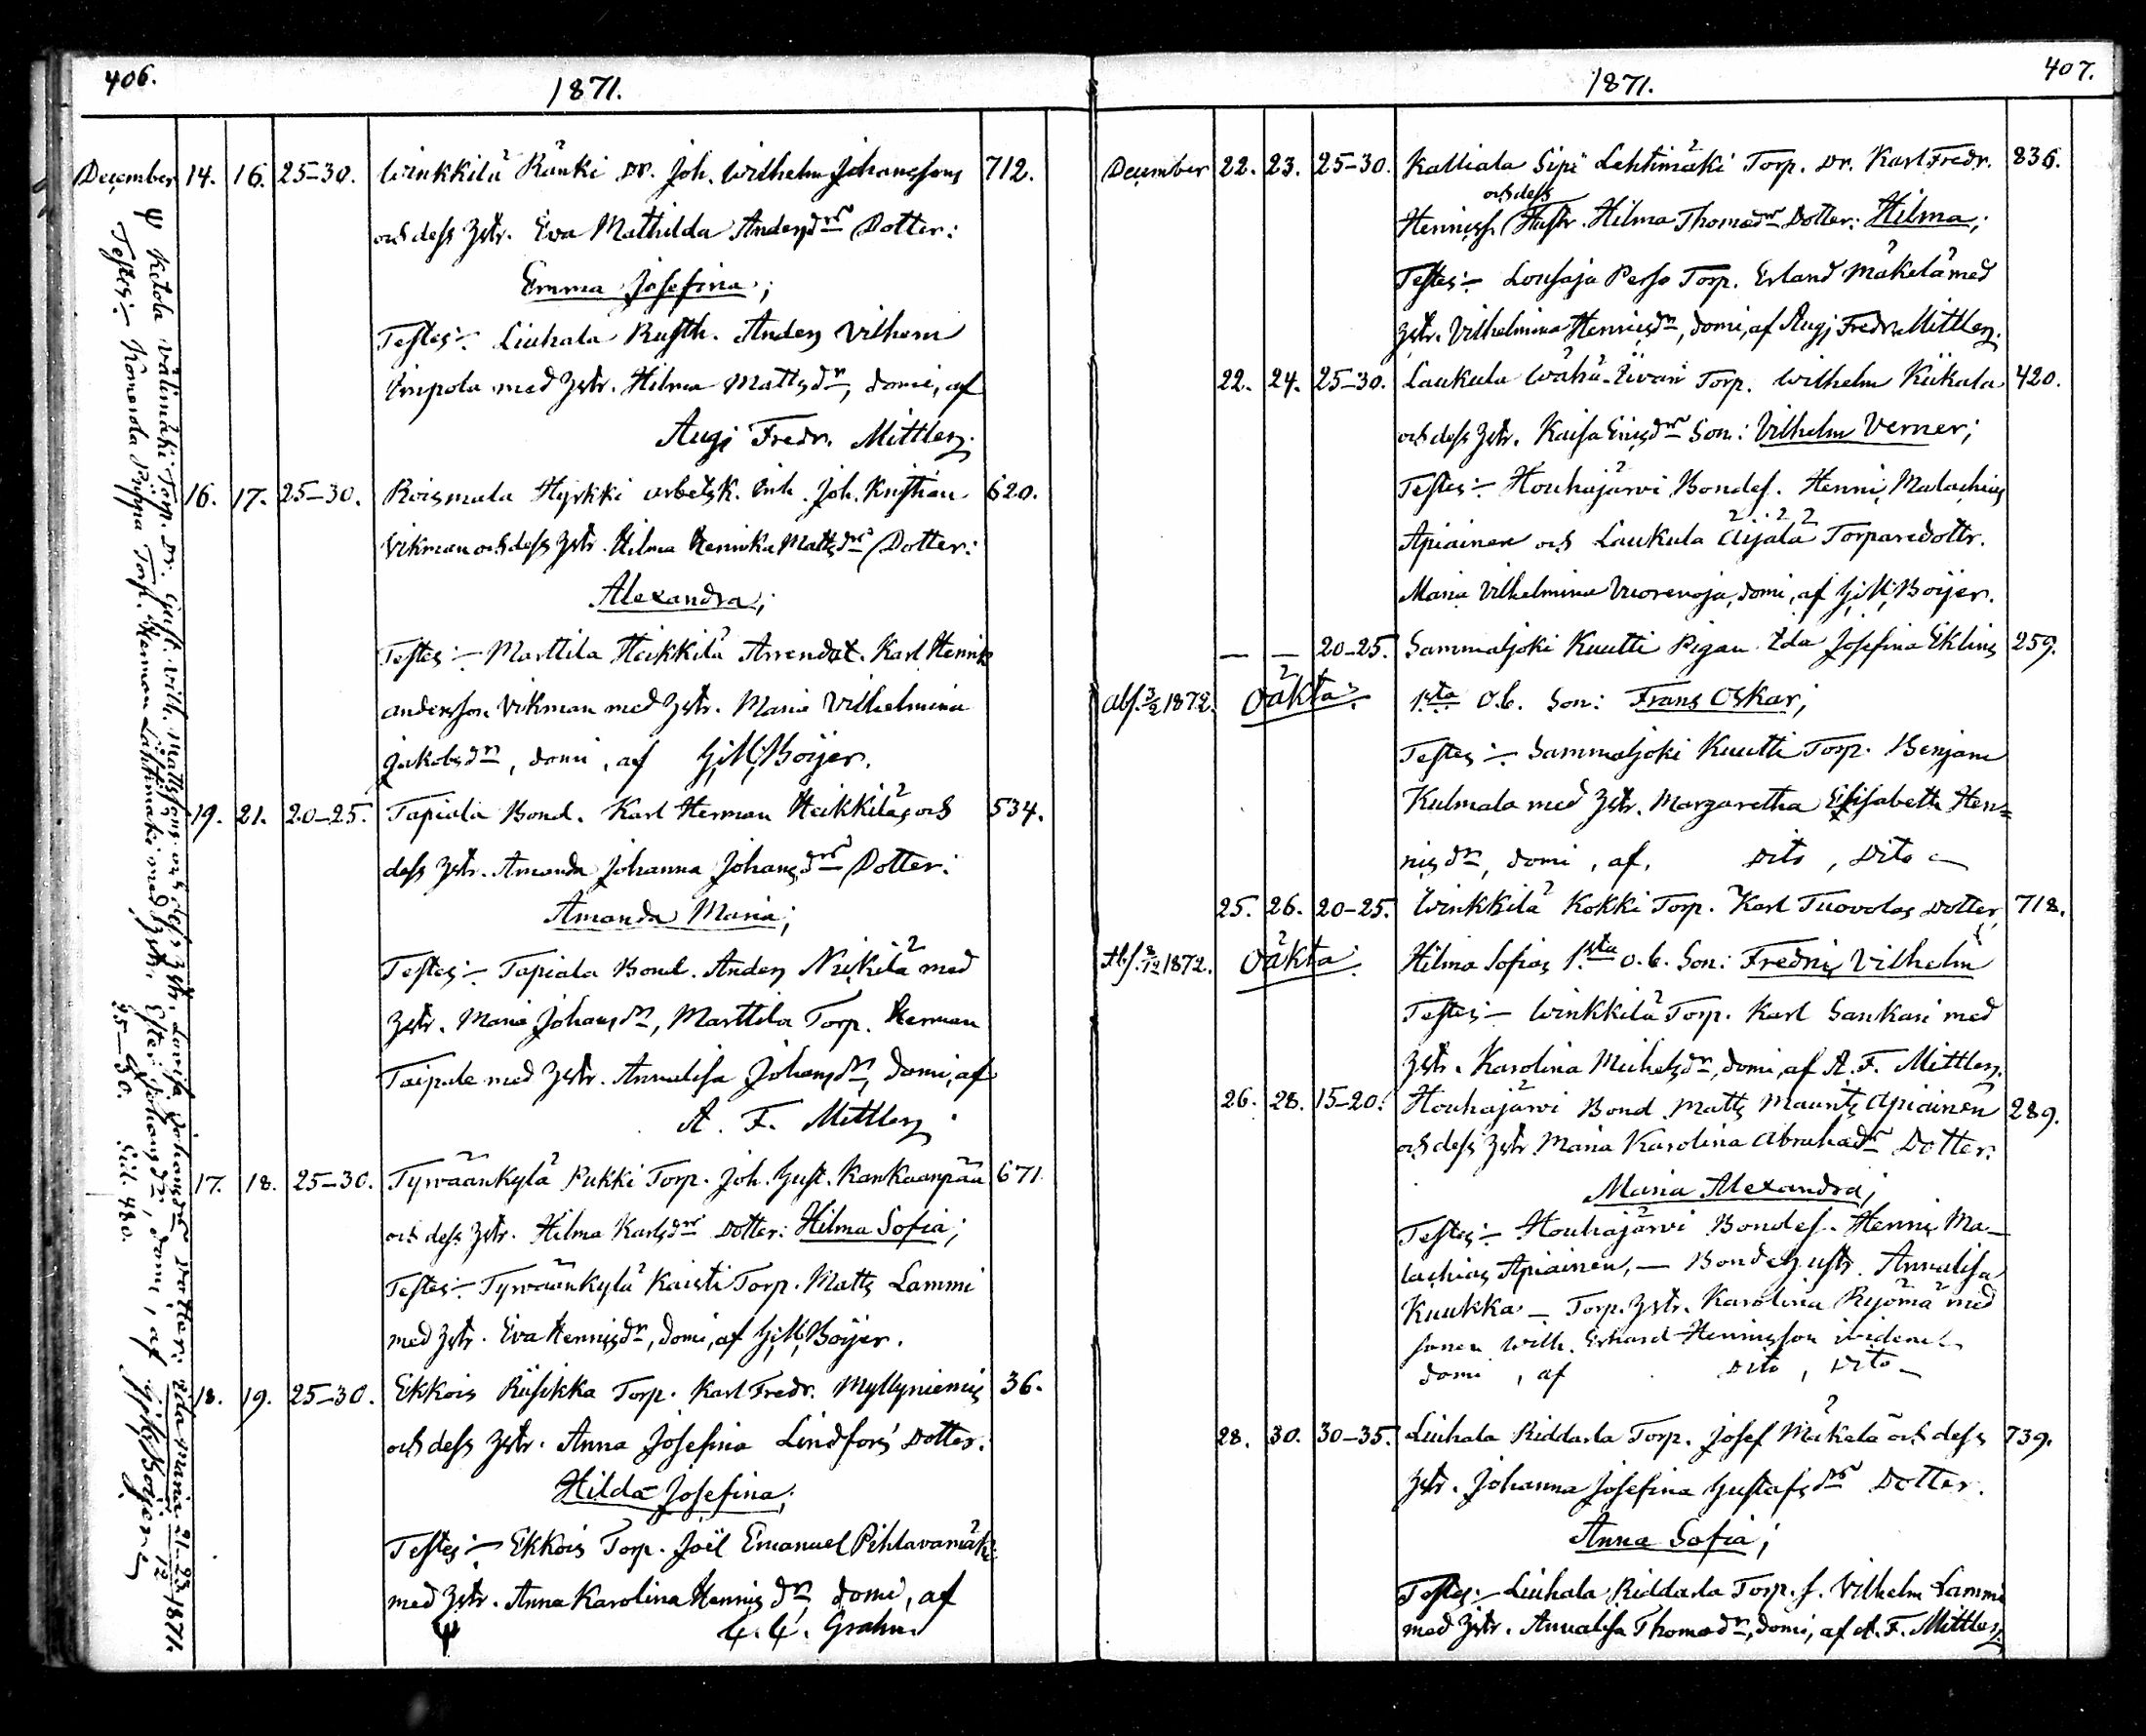 406.
1871.
December 14. 16. 25–30. Winkkilä Ränki Dr. Joh. Wilhelm Johanssons 712.
och dess Hstr. Eva Mathilda Andersdrs Dotter:
Emma Josefina;
Testes:– Liuhala Rusth. Anders Vilhem
Impola med Hstr. Hilma Mattsdr, domi, af
Aug: Fredr. Mittler.
16. 17. 25–30. Roismala Hyrkki arbetsk. Inh. Joh. Kristian 620.
Vikman och dess Hstr. Hilma Henrika Mattsdrs Dotter:
Alexandra;
Testes:– Marttila Heikkilä Arrendat. Karl Henrik
andersson Vikman med Hstr. Maria Vilhelmina
Jakobsdr, domi, af G: M: Boijer.
19. 21. 20–25. Tapiala Bond. Karl Herman Heikkiläs och 534.
dess Hstr. Amanda Johanna Johansdrs Dotter:
Amanda Maria;
Testes:– Tapiala Bond. Anders Nikilä med
Hstr. Maria Johansdr, Marttila Torp. Herman
Taipale med Hstr. Annalisa Johansdr, domi, af
A. F. Mittler.
17. 18. 25–30. Tyrväänkylä Pukki Torp. Joh. Gust. Kankaanpää 671.
och dess Hstr. Hilma Karlsdrs Dotter: Hilma Sofia;
Testes:– Tyrväänkylä Kaisti Torp. Matts Lammi
med Hstr. Eva Henrisdr, domi, af G: M: Boijer.
18. 19. 25–30. Ekkois Riisikka Torp. Karl Fredr. Myllyniemis 36.
och dess Hstr. Anna Josefina Lindfors' Dotter.
Hilda Josefina;
Testes:– Ekkois Torp. Joël Emanuel Pihlavamäki
med Hstr. Anna Karolina Henrisdr domi, af
Ψ Grahn.
Ψ Ketola Välimäki Torp. Dr. Gust. Vilh. Mattssons och dess Hstr. Lovisa Johansdrs Dotter: Ida Maria 21–23/12 1871.
Testes:– Torp. Herman Lähtimäki med Hstr. Ester Johansdr, domi, af G: M: Boijer.
25–30. Sid. 480.
407.
1871.
December 22. 23. 25–30. Kalliala Sipi Lehtimäki Torp. Dr. Karl Fredr. 836.
och dess
Henriss. Hustr. Hilma Thomædrs Dotter: Hilma;
Testes:– Lousaja Perho Torp. Erland Mäkelä med
Hstr. Vilhelmina Henrisdr, domi, af Aug: Fredr. Mittler.
22. 24. 25–30. Laukula Wähä-Iivari Torp. Wilhelm Kiikala 420.
och dess Hstr. Kaisa Son: Vilhelm Verner;
Testes:– Houhajärvi Bondes. Henri Malachias
Apiainen och Laukula Äijälä Torparedottr.
Maria Vilhelmina Vuorenoja, domi, af G: M: Boijer.
– – 20–25. Sammaljoki Kuutti Pigan Ida Josefina Eklins 259.
abs. 3/2 1872. Oäkta. 1sta o.b. Son: Frans Oskar;
Testes:– Sammaljoki Kuutti Torp. Benjam
Kulmala med Hstr. Margaretha Elisabeth Hen=
risdr, domi, af, Dito, Dito –
25. 26. 20–25. Winkkilä Kokki Torp. Karl Tuovolas Dotter 718.
Abs. 1872. Oäkta. Hilma Sofias 1sta o.b. Son: Fredric Vilhelm
Testes:– Winkkilä Torp. Karl Sankari med
Hstr. Karolina Michelsdr, domi, af A. F. Mittler.
26. 28. 15–20. Houhajärvi Bond Matts Maurits Apiainen 289.
och dess Hstr. Maria Karolina Abrahadrs Dotter:
Maria Alexandra;
Testes:– Houhajärvi Bondes. Henri Ma–
lachias Apiainen, – Bondehustr. Annalisa
Kuukka – Torp. Hstr. Karolina Rijömä med
sonen Wilh. Erhard Henriksson ividem
domi, af Dito, Dito –
28. 30. 30–35. Liuhala Riddarla Torp. Josef Mäkelä och dess 739.
Hstr. Johanna Josefina Gustafsdrs Dotter.
Anna Sofia;
Testes:– Liuhala Riddarla Torp. s. Vilhelm Lammi
med Hstr. Annalisa Thomædr, domi, af A. F. Mittler.